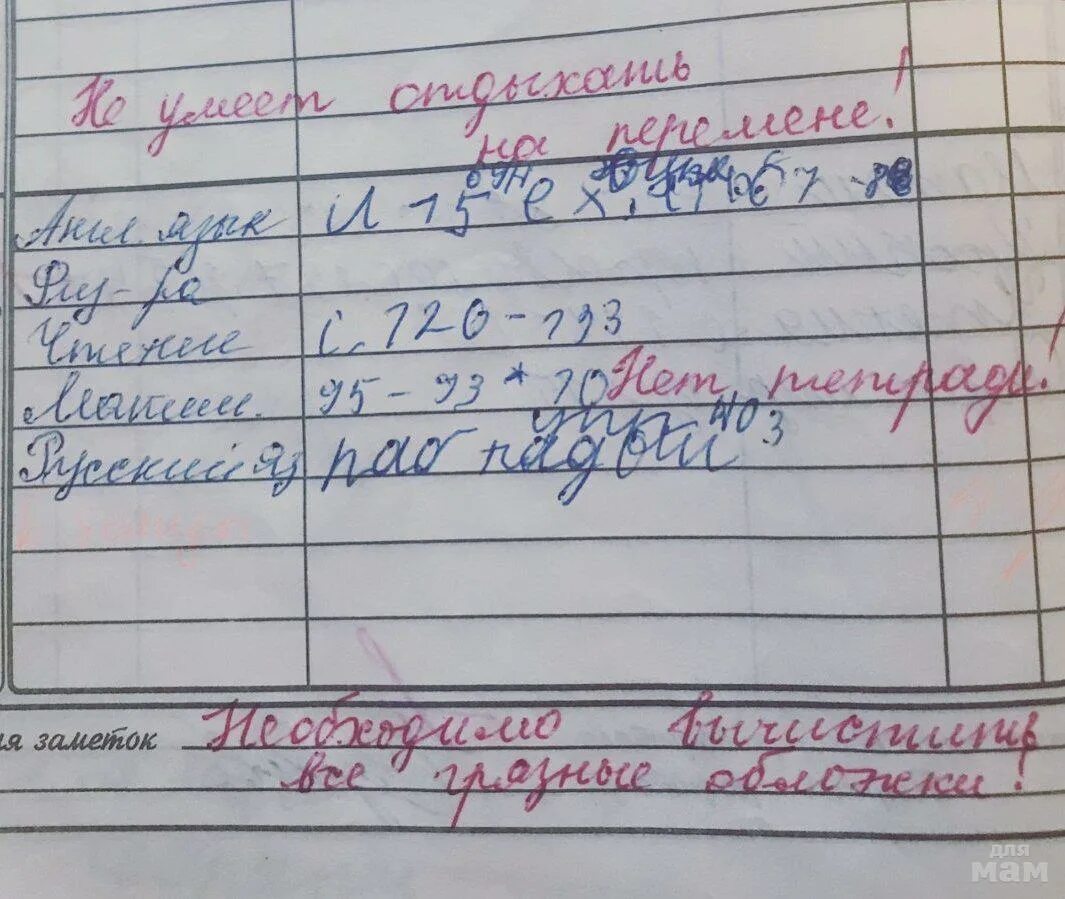 Не умеет отдыхать
на перемене!
Англ. язык
Физ-ра
Чтение с. 120-133
Матем. 95-93* 10 Нет тетради!
упр 403
Русский яз раб
ия заметок Необходимо вычистить
все грязные обложки!
для
мам